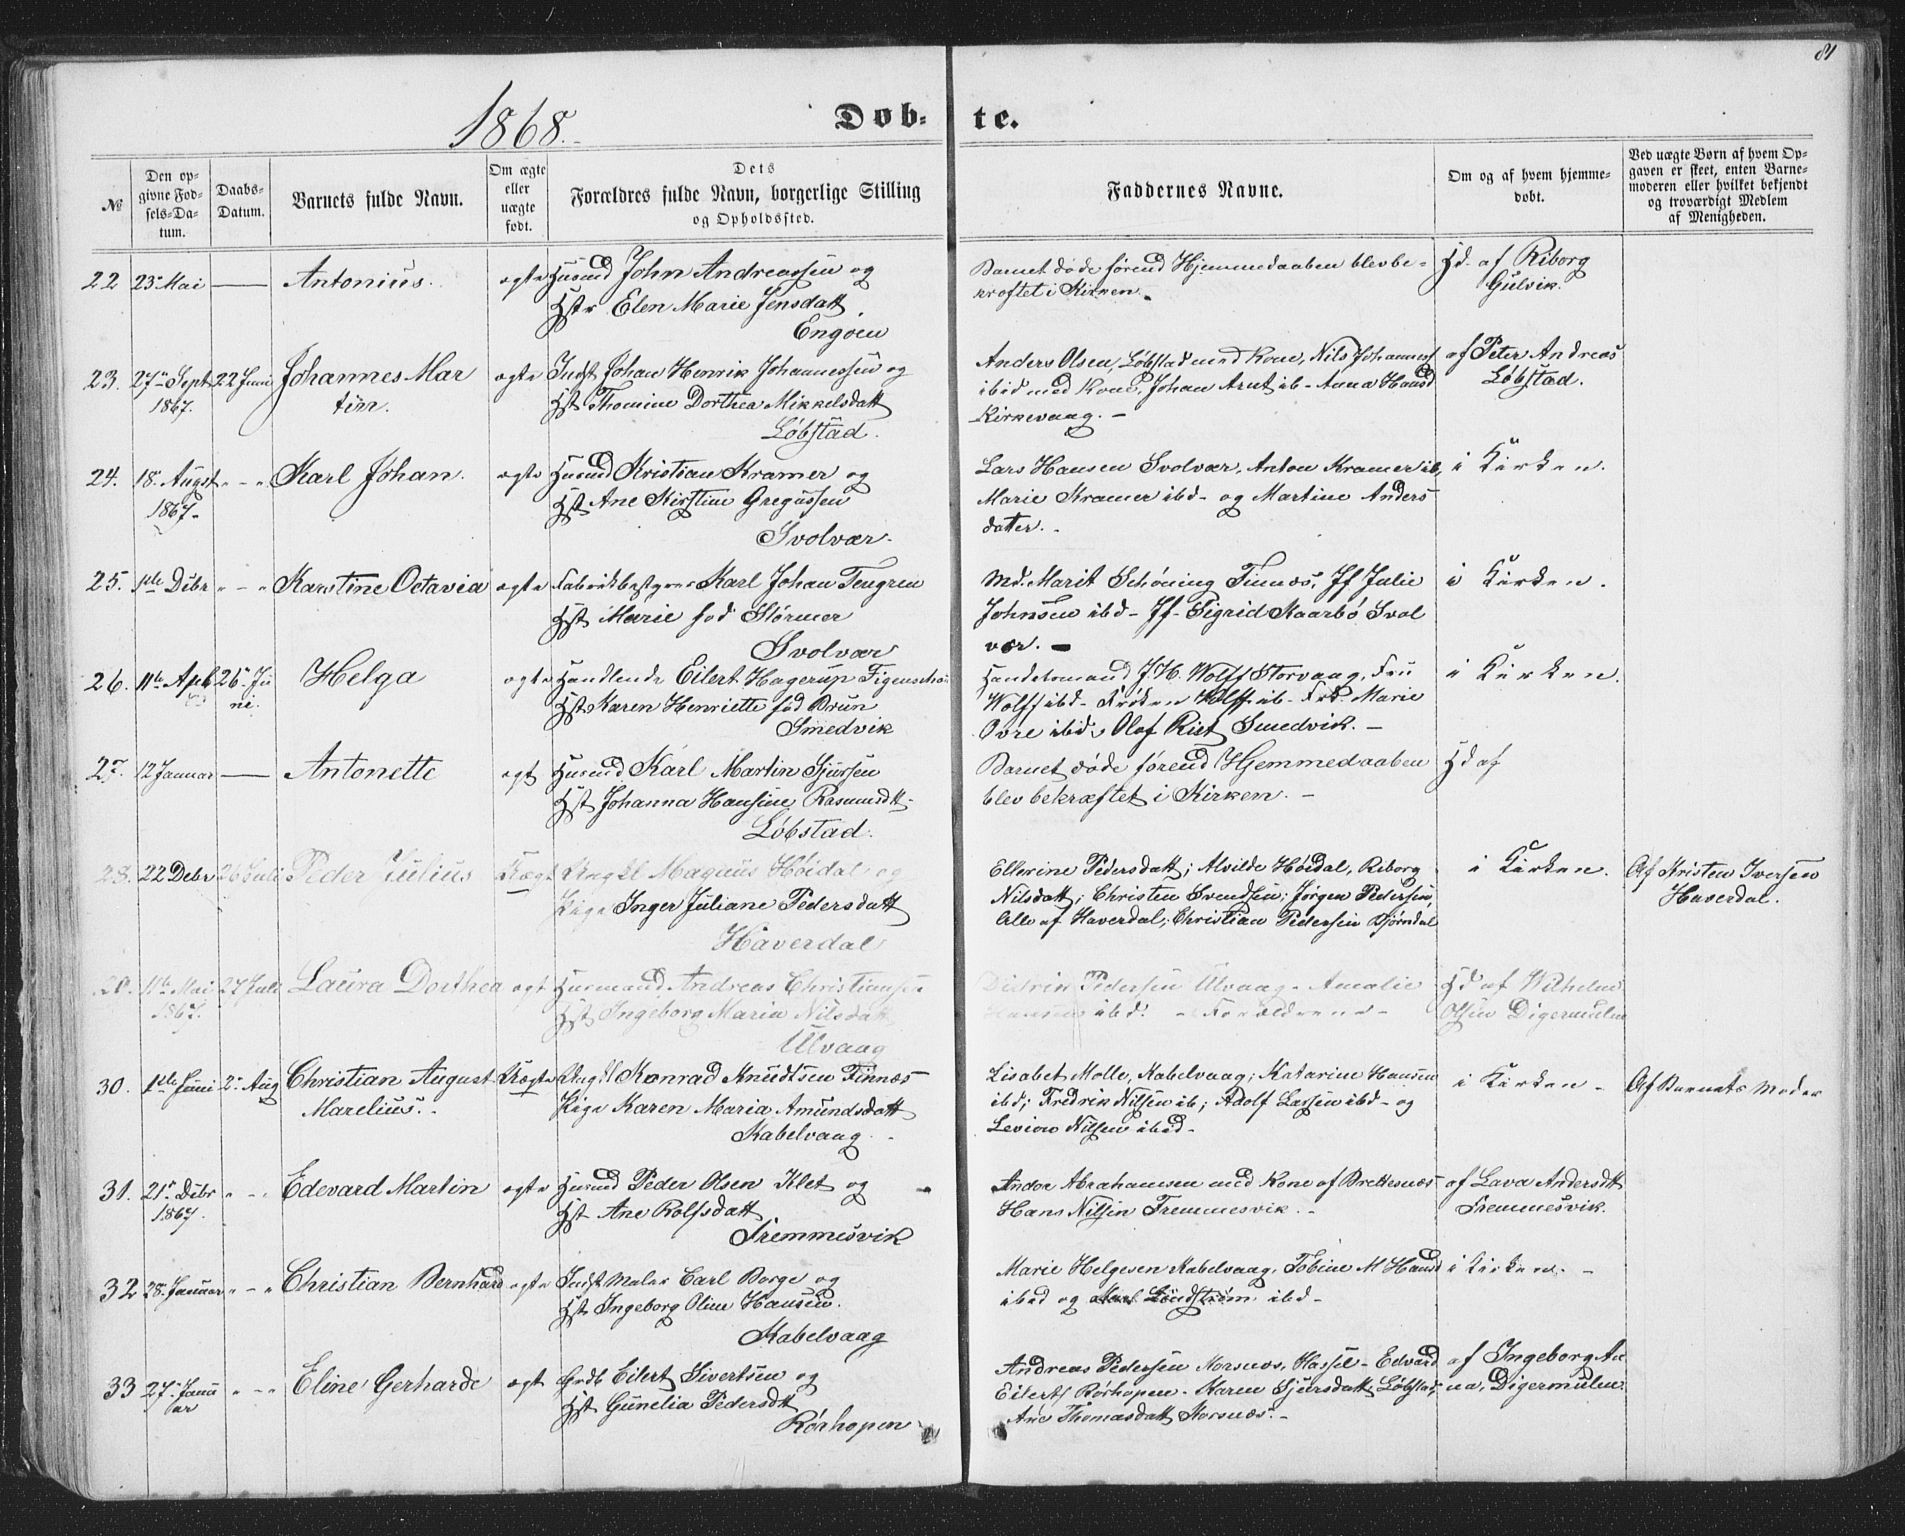 81
1868.
Døb-te.
№
Den opgivne Fødsels-Datum.
Daabs-Datum.
Barnets fulde Navn.
Om ægte eller uægte født.
Dets Forældres fulde Navn, borgerlige Stilling og Opholdssted.
Faddernes Navne.
Om og af hvem hjemmedøbt.
Ved uægte Børn af hvem Opgaven er skeet, enten Barnemoderen eller hvilket bekjendt og troværdigt Medlem af Menigheden.
22 23 Mai — Antonius. ægte Husmd John Andreassen og
Hstr Elen Marie Jensdatt
Engøen
Barnet døde førend Hjemmedaaben blev be-
kræftet i Kirken.
Hd. af Riborg
Gulvik.
23. 27 Sept 1867. 22 Juni Johannes Mar
tin. ægte Indst Johan Henrik Johannessen og
Hst Thomine Dorthea Mikkelsdatt
Løbstad.
Anders Olsen, Løbstad med Kone, Nils Johanness
ibid med Kone, Johan Arnt ib- Anna Hansd
Kirkevaag. -
af Peter Andreas
Løbstad.
24. 18. Augst 1867. " - " Karl Johan. ægte Husmd Kristian Kramer og
Hst Ane Kirstine Gregussen
Svolvær.
Lars Hansen Svolvær, Anton Kramer ib,
Marie Kramer ibd- og Martine Anders
datter. -
i Kirken.
25. 1ste Debr " - " Karstine Octavia ægte Fabrikbestyrer Karl Johan Tengren
Hst Marie fød Størmer
Svolvær
Md. Marit Schøning Finnæs, Jf Julie
Johnsen ibd- Jf- Sigrid Kaarbø Svol
vær. -
i Kirken.
26. 11te Apl 26 Ju
ni. Helga ægte Handlende Eilert Hagerup Figenschou
Hst Karen Henriette fød Brun
Smedvik
Handelsmand J. H. Wolff Storvaag, Fru
Wolff ibd- Frøken Wolff ib- Frk. Marie
Ovre ibid, Olaf Rist Smedvik. -
i Kirken.
27. 12 Januar — Antonette ægt Husmd Karl Martin Sjursen
Hst Johanna Hansine Rasmusdtt-
Løbstad.
Barnet døde førend Hjemmedaaben
blev bekræftet i Kirken. -
Hd af
28. 22 Debr 26 Juli Peder Julius Uægt Ungkl Magnus Høidal og
Pige Inger Juliane Pedersdatt
Haverdal
Ellerine Pedersdatt; Alvilde Høidal, Riborg
Nilsdatt; Christen Svendsen; Jørgen Pedersen,
Alle af Haverdal; Christian Pedersen Bjørndal
i Kirken.
Af Kristen Iversen
Haverdal.
29. 11te Mai 1867. 27 Juli Laura Dorthea ægt Husmand Andreas Christiansen
Hst Ingeborg Maria Nilsdatt
Ulvaag
Didrik Pedersen Ulvaag- Amalie
Hansens ibd. - Forældrene -
Hd af Wilhelm
Olsen Digermulen
30. 1ste Juni 2 Aug Christian August
Marelius. - Uægte Ungkl Konrad Knudtsen Finnæs
Pige Karen Maria Amundsdatt
Kabelvaag. -
Lisabet Molle, Kabelvaag; Katarine Hansen
ibd; Fredrik Nilsen ib; Adolf Larsen ibd- og
Nilsen ibid-
i Kirken -
Af Barnets Moder
31. 21 Debr 1867. " - " Edevard Martin ægte Husmd Peder Olsen Klet og
Hst Ane Rolfsdatt
Tremmesvik
Andor Abrahamsen med Kone af Brettesnæs
Hans Nilsen Tremmesvik. -
af Lava Andersdtt
Tremmesvik.
32 28. Januar " - " Christian Bernhard ægte Indst Maler Carl Borge og
Hst Ingeborg Oline Hansen.
Kabelvaag
Marie Helgesen Kabelvaag, Tobine M Hansd
ibid og Lindstrøm ibd-
i Kirken. -
33 27. Janu
ar " - " Eline Gerharde ægt Eilert Sivertsen og
Hst Gunelia Pedersdtt
Rørhopen
Andreas Pedersen Korsnæs, Hassel- Edvard
Eilerts Rørhopen- Karen Sjursdatt Løbstad,
Ane Thomasdatt Korsnæs. -
af Ingeborg An
na, Digermulen